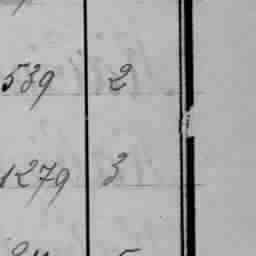 539 2
1279 3